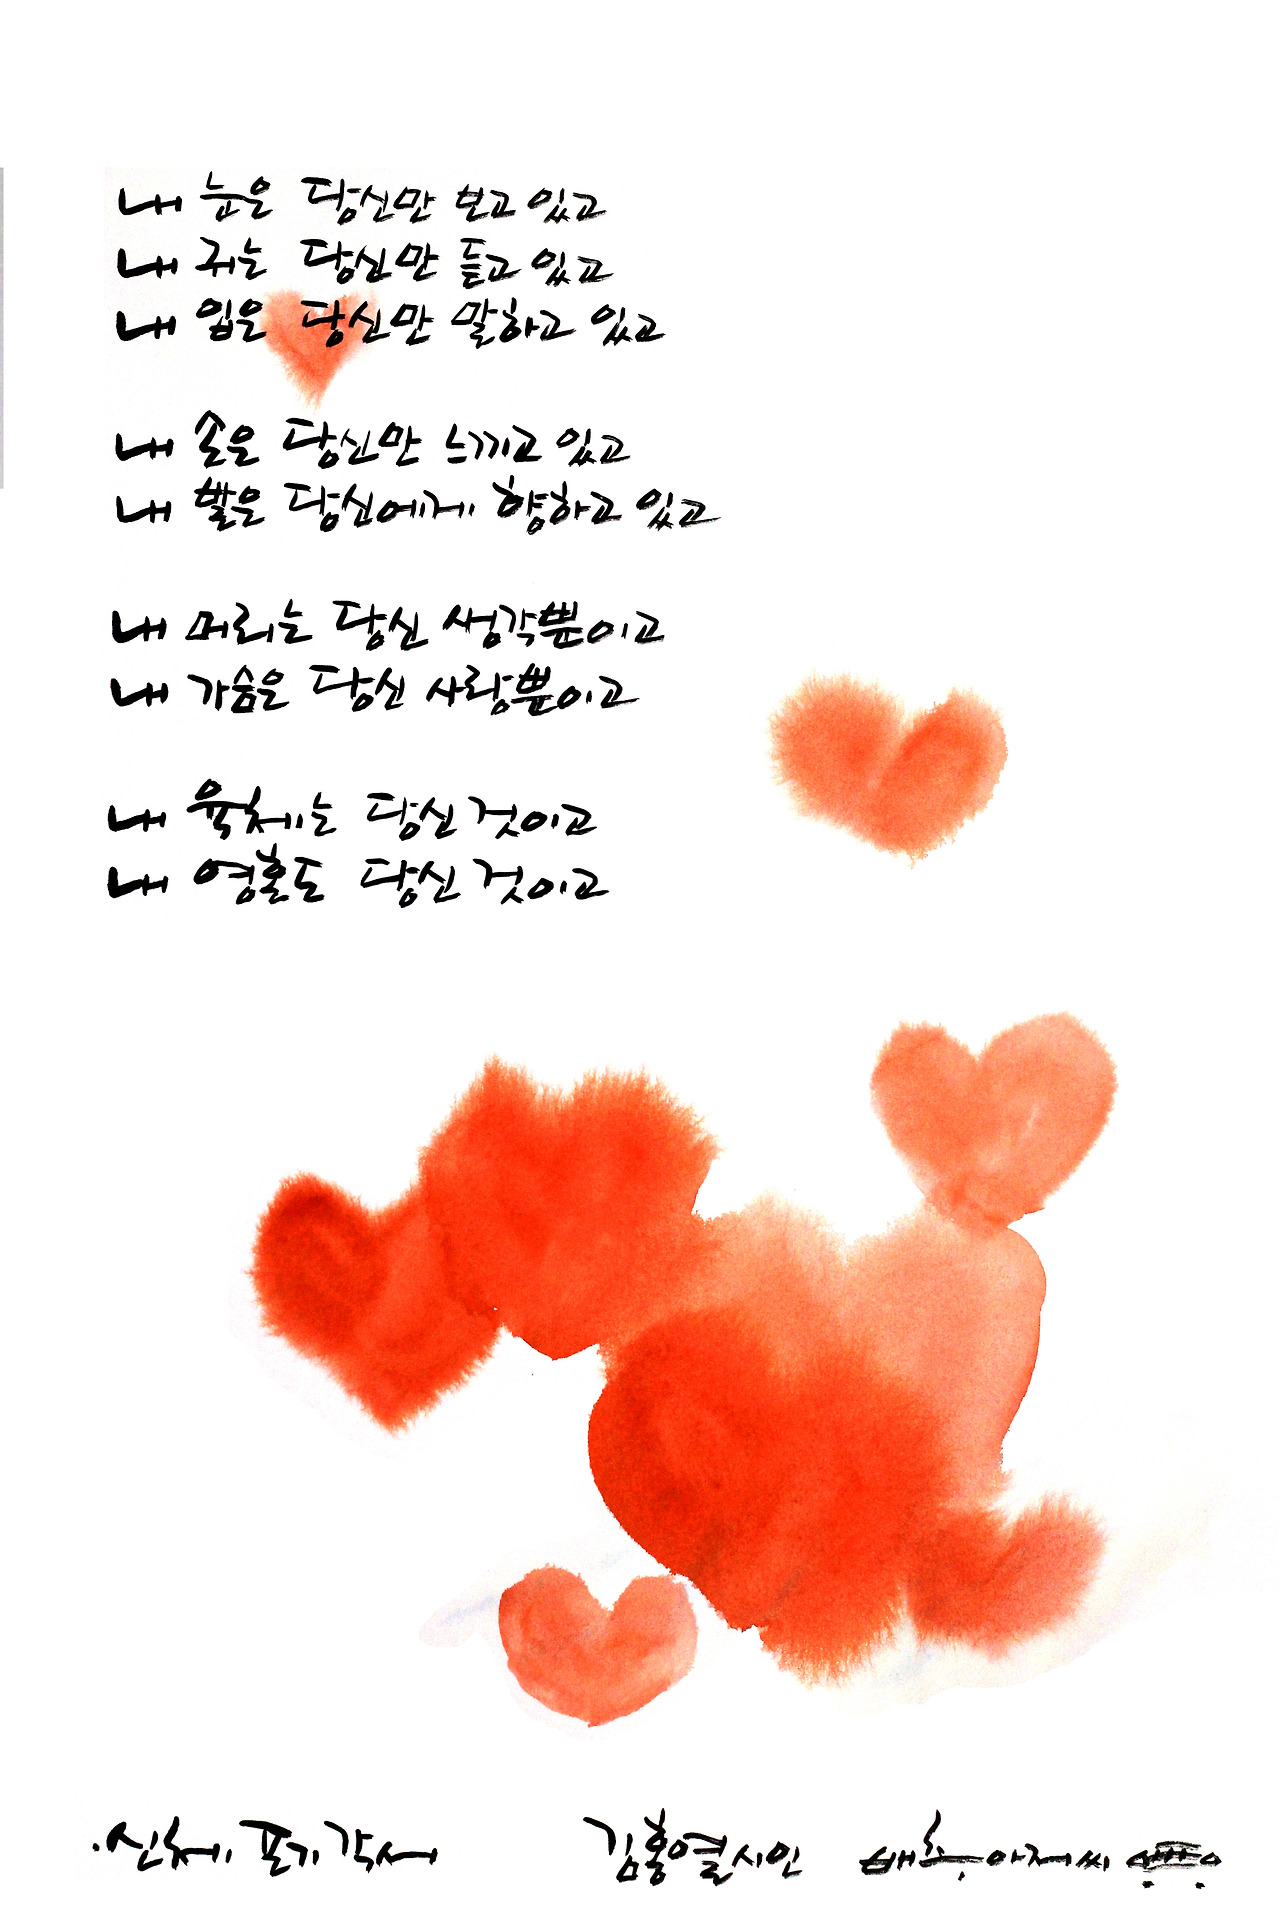 내 눈은 당신만 보고 있고
내 귀는 당신만 듣고 있고
내 입은 당신만 말하고 있고
내 손은 당신만 느끼고 있고
내 발은 당신에게 향하고 있고
내 머리는 당신 생각뿐이고
내 가슴은 당신 사랑뿐이고
내 육체는 당신 것이고
내 영혼도 당신 것이고
신체 포기 각서 김홍열 시인 아저씨